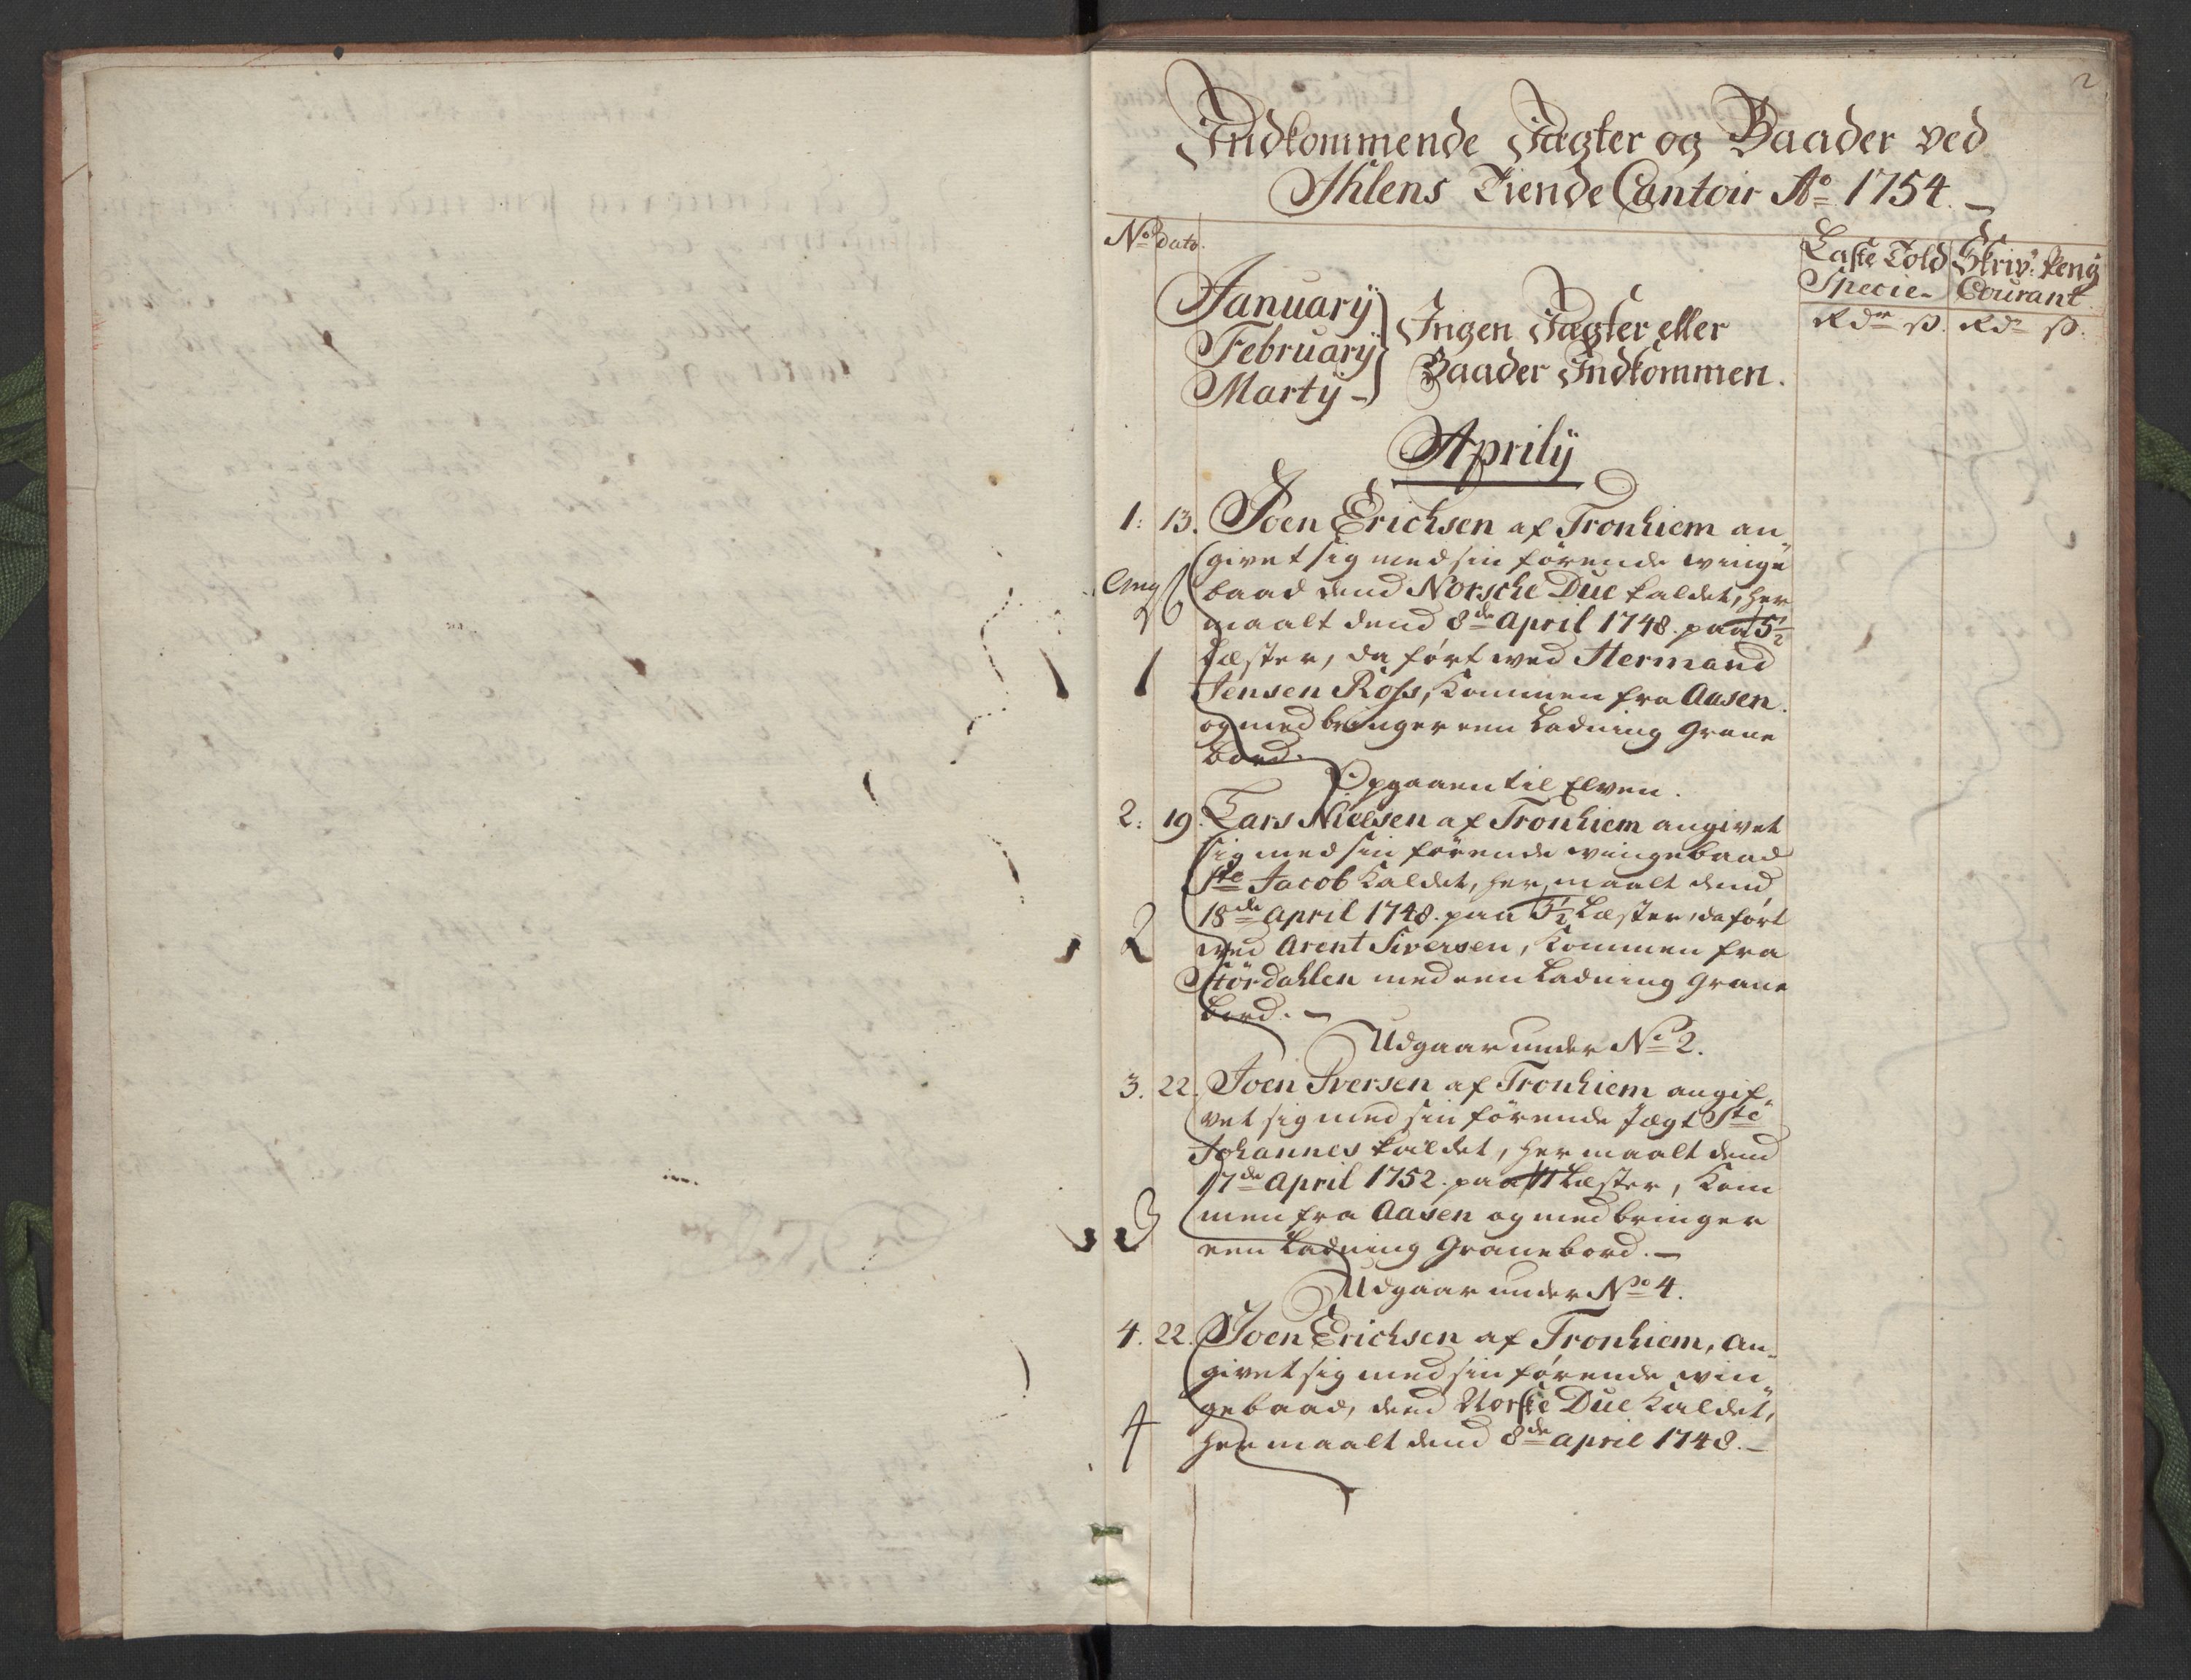 2
Indkommende Jagter og Baader ved
Ihlens Tiende Cantoir Ao 1754.
No dato.
Laste Told Skriv: Peng
Specie- Courant
Rdr ß. Rdr ß.
Januarÿ
Februarÿ
Martÿ -
Ingen Jagter eller
Baader Indkommen.
Aprilÿ
1: 13. Joen Erichsen af Tronhiem an
givet sig med sin förende winge
baad dend Norsche Due kaldet, her
maalt dend 8de April 1748. paa 5½
Læster, da fört ved Hermand
Jensen Ross, kommen fra Aasen.
og medbringer een Ladning Grane
bord.
1
Opgaaen til Elven.
2: 19. Lars Nielsen af Tronhiem angivet
sig med sin förende wingebaad
Ste Jacob kaldet, her maalt dend
18de April 1748. paa 5½ Læster, da fört
ved Arent Siversen, kommen fra
2
Stördahlen med een Ladning Grane
bord. -
Udgaar under No 2.
3. 22. Joen Iversen af Tronhiem angif-
vet sig med sin förende Jægt Ste
Johannes kaldet, her maalt dend
17de April 1752. paa 11 Læster, kom
men fra Aasen og medbringer
3
een Ladning Granebord. -
Udgaar under No 4.
4. 22. Joen Erichsen af Tronhiem, an-
givet sig med sin förende win-
gebaad, dend Norske Due kaldet,
her maalt dend 8de April 1748. -
4